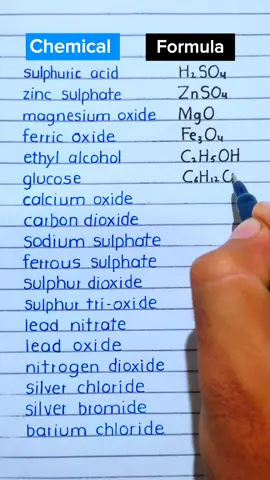 Chemical Formula
sulphuric acid H₂SO₄
zinc sulphate ZnSO₄
magnesium oxide MgO
ferric oxide Fe₃O₄
ethyl alcohol C₂H₅OH
glucose C₆H₁₂O
calcium oxide
carbon dioxide
sodium sulphate
ferrous sulphate
sulphur dioxide
sulphur tri-oxide
lead nitrate
lead oxide
nitrogen dioxide
silver chloride
silver bromide
barium chloride